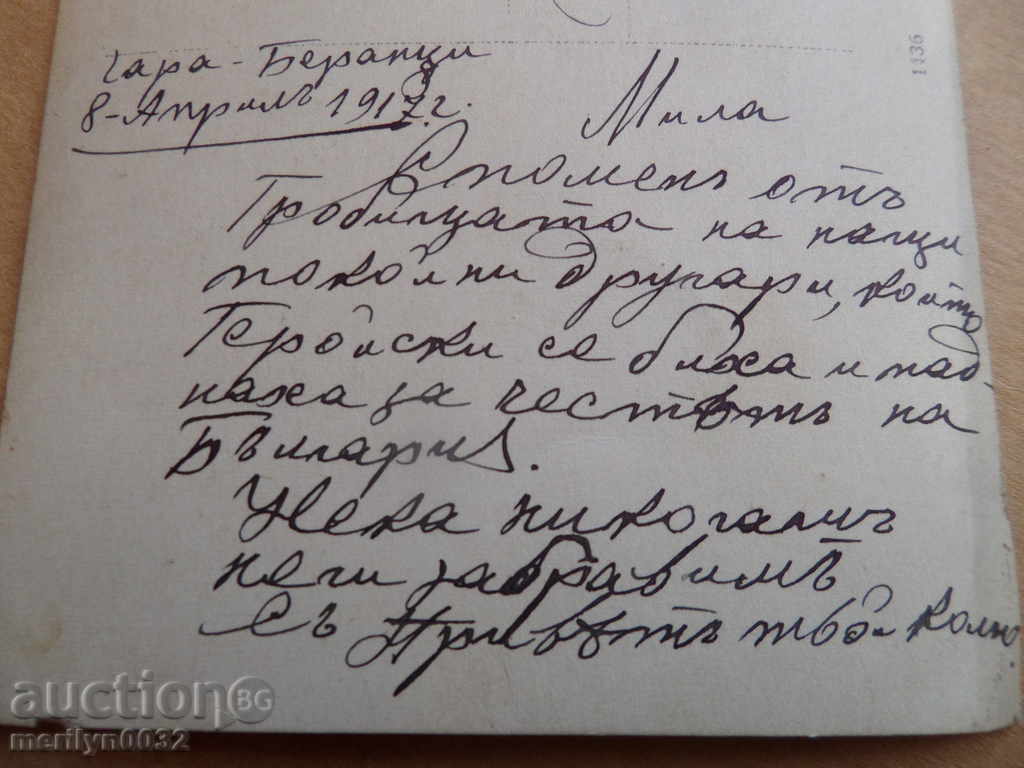 гара - Беранци
8 - Априлъ 1917 г.
1136
Мила
Споменъ отъ
Гробищата на наши
покойни другари, които
Геройски се биха и пад-
наха за честьтъ на
България.
Нека никогашъ
неги забравимъ
Съ Приветъ твой Кольо.
auctionBG
merilyn0032